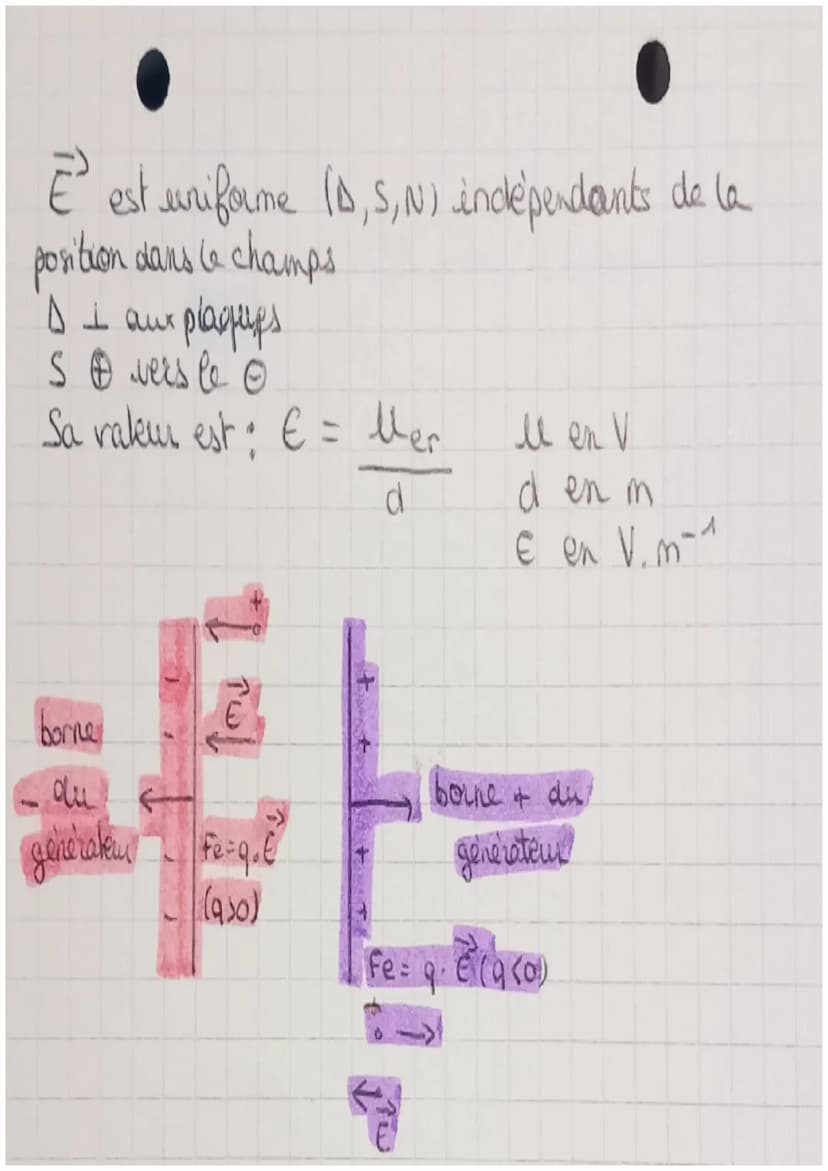 E⃗ est uniforme (D, S, N) indépendants de la
position dans le champs
D ⊥ aux plaques
S ⊕ vers le ⊖
Sa valeur est : E = U / d
U en V
d en m
E en V.m⁻¹
+
-
E⃗
-
borne
- du
générateur
-
Fe = q.E⃗
(q>0)
-
+
+
borne + du
générateur
+
+
Fe = q . E⃗ (q<0)
E⃗